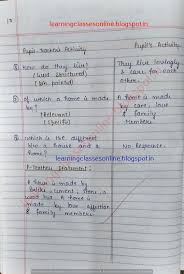 Pupil-Teacher's Activity
Pupil's Activity
How do they live?
(Well structured)
They live lovingly
& care for each
other.
learningclassesonline.blogspot.in
Of which a home is made
by?
(Relevant)
A home is made
by care, love
& family
Members
Which is the different
b/w a house and a
home?
No Response.
learningclassesonline.blogspot.in
P-Teacher Statement:
A House is made by
Bricks, cement, stone,
a home is
made by love affection
& family members.
learningclassesonline.blogspot.in